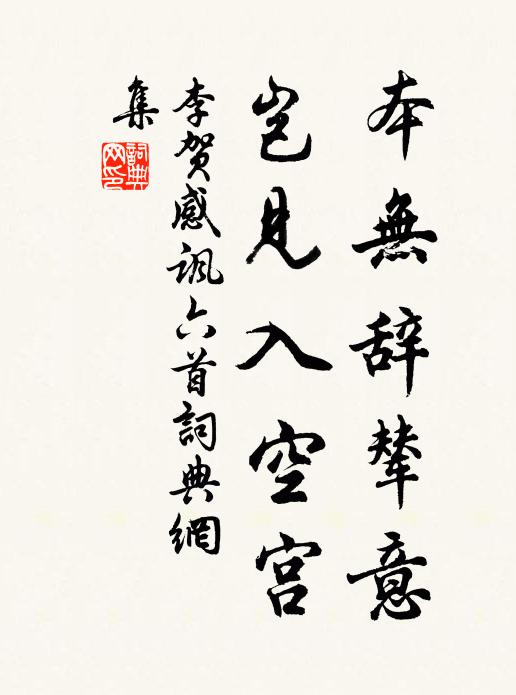 本無辞輦意
豈見入空宮
李賀感諷六首詞典網
集
詞典
网印